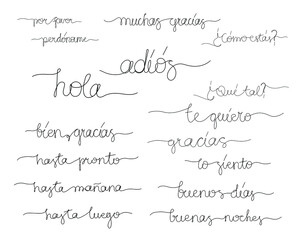 por favor
muchas gracias
perdóname
¿Cómo estás?
adiós
hola
¿Qué tal?
te quiero
bien, gracias
gracias
hasta pronto
lo siento
hasta mañana
buenos días
hasta luego
buenas noches